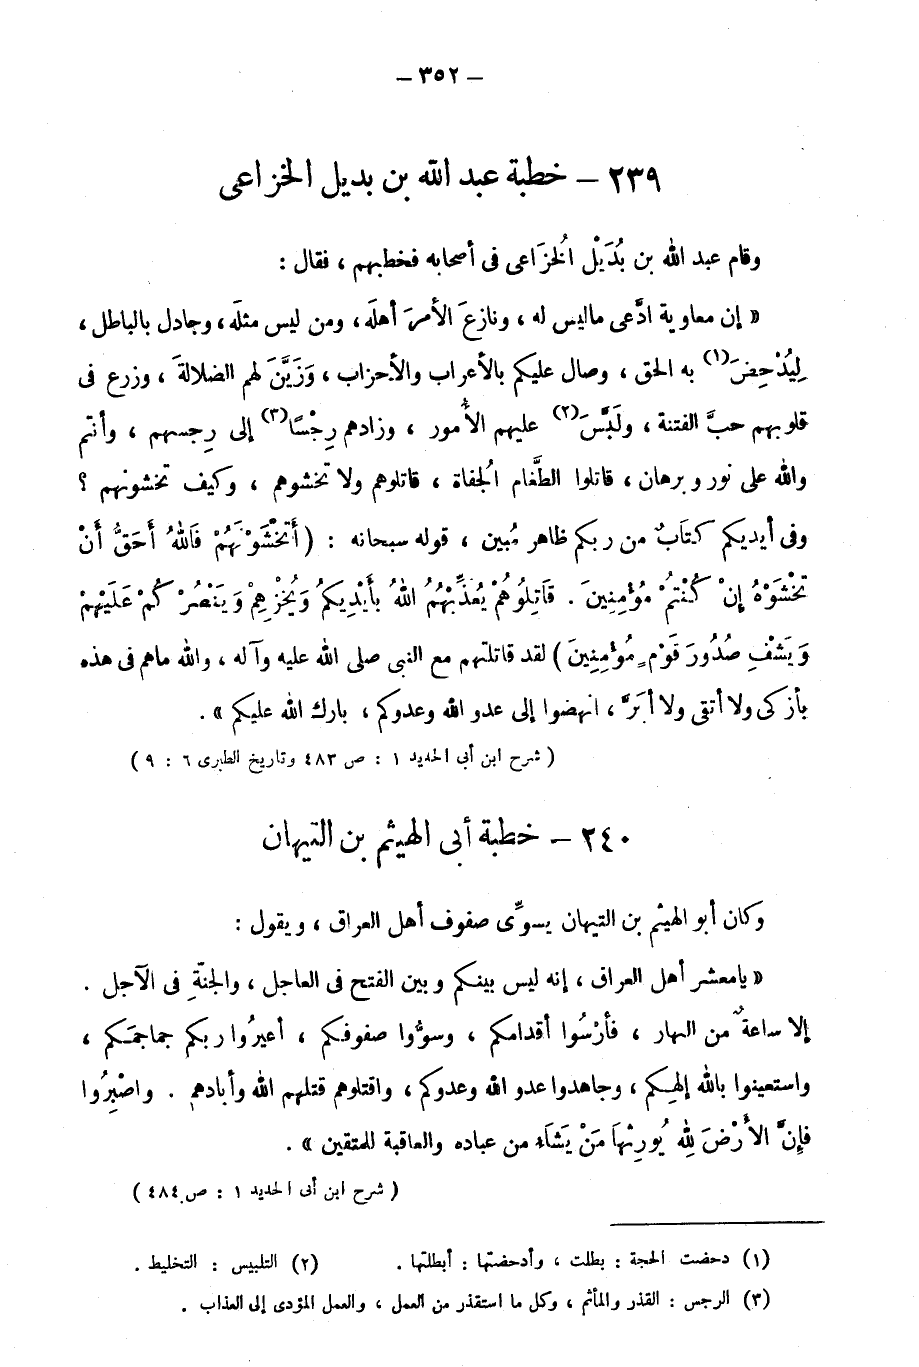 – ٣٥٢ –
٢٣٩ – خطبة عبد الله بن بديل الخزاعى
وقام عبد الله بن بُدَيْل الخُزَاعى فى أصحابه فخطبهم ، فقال :
« إن معاوية ادَّعى ماليس له ، ونازعَ الأمرَ أهلَه، ومن ليس مثلَه، وجادل بالباطل ،
لِيُدْحِضَ(١) به الحق ، وصال عليكم بالأعراب والأحزاب ، وَزَيَّنَ لهم الضلالةَ ، وزرع فى
قلوبهم حبَّ الفتنة ، ولَبَّسَ(٢) عليهم الأُمور ، وزادهم رِجْسًا(٣) إلى رِجسهم ، وأنتم
والله على نور وبرهان ، قاتلوا الطَّغام الجُفاة ، قاتلوهم ولا تخشوهم ، وكيف تخشونهم ؟
وفى أيديكم كتَابٌ من ربكم ظاهر مُبين ، قوله سبحانه : ( أَتَخْشَوْنَهُمْ فَاللهُ أَحَقُّ أَنْ
تَخْشَوْهُ إِنْ كُنْتُمْ مُؤْمِنِينَ . قَاتِلُوهُمْ يُعَذِّبْهُمُ اللهُ بأَيْدِيكُمْ وَيُخْزِهِمْ وَيَنْصُرْكُمْ عَلَيْهِمْ
وَيَشْفِ صُدُورَ قَوْمٍ مُؤْمِنِينَ ) لقد قاتلتهم مع النبى صلى الله عليه وآله ، والله ماهم فى هذه
بأزكى ولا أتقى ولا أبَرَّ ، انهضوا إلى عدو الله وعدوكم ، بارك الله عليكم » .
( شرح ابن أبى الحديد ١ : ص ٤٨٣ وتاريخ الطبرى ٦ : ٩ )
٢٤٠ – خطبة أبى الهيثم بن التيهان
وكان أبو الهيثم بن التيهان يسوِّى صفوف أهل العراق ، ويقول :
« يامعشر أهل العراق ، إنه ليس بينكم وبين الفتح فى العاجل ، والجنَّةِ فى الآجل .
إلا ساعةٌ من النهار ، فأرْسُوا أقدامكم ، وسوُّوا صفوفكم ، أعيرُوا ربكم جماجمَكم ،
واستعينوا بالله إلهِكم ، وجاهدوا عدو الله وعدوكم ، واقتلوهم قتلهم الله وأبادهم . واصْبِرُوا
فإِنَّ الأَرْضَ لِلهِ يُورِثُهَا مَنْ يَشَاءُ من عباده والعاقبة للمتقين » .
( شرح ابن أبى الحديد ١ : ص ٤٨٤ )
(١) دحضت الحجة : بطلت ، وأدحضتها : أبطلتها . (٢) التلبيس : التخليط .
(٣) الرجس : القذر والمأثم ، وكل ما استقذر من العمل ، والعمل المؤدى إلى العذاب .